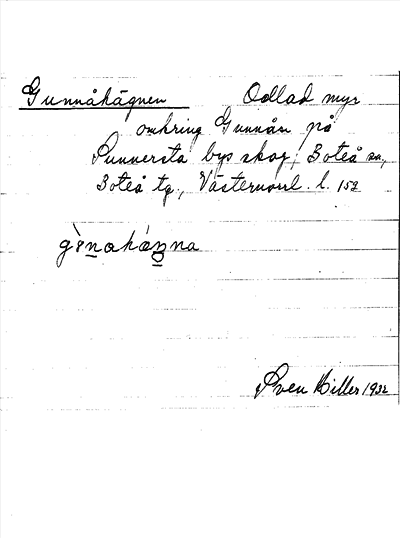 Gunnåhägnen Odlad myr
omkring Gunnån på
Sunnersta bys skog, Boteå sn,
Boteå tg, Västernorrl. l. 152
Sven Hiller 1932